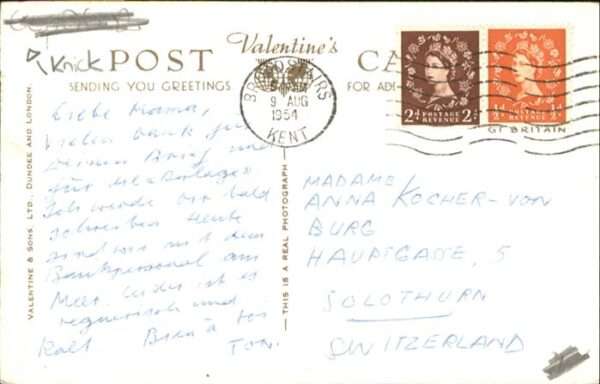 Knick
POST
Valentine's
SENDING YOU GREETINGS
FOR ADD
BROADSTAIRS
9 AUG
1954
KENT
2d POSTAGE REVENUE 2d
½d POSTAGE REVENUE ½d
GT BRITAIN
Liebe Mama,
Vielen Dank für
Deinen Brief und
für die
Ich werde Dir bald
schreiben Heute
sind wir mit dem
Bankpersonal am
Meer. Leider ist es
regnerisch und
kalt Bien à toi
TON.
VALENTINE & SONS, LTD., DUNDEE AND LONDON.
THIS IS A REAL PHOTOGRAPH
MADAME
ANNA KOCHER-VON
BURG
HAUPTGASSE, 5
SOLOTHURN
SWITZERLAND